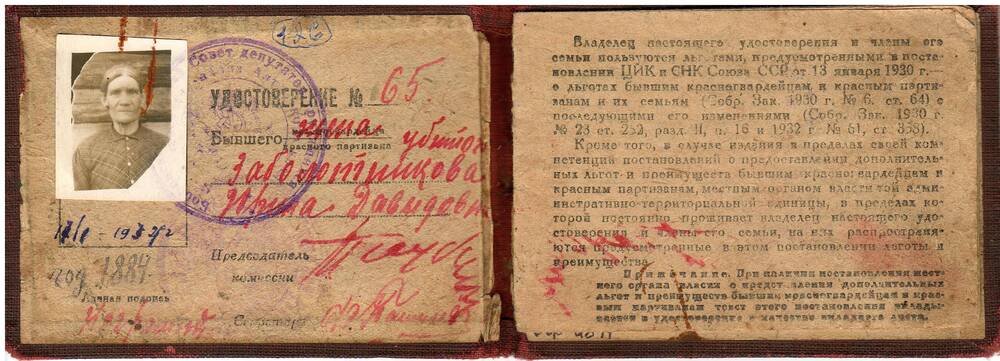 126
Совет депутатов
УДОСТОВЕРЕНИЕ № 65.
Бывшего жена убитого
красного партизана
Заболотникова
Ирина Давидовн
193 г
Председатель
комиссии
год 1884.
Личная подпись
Неграмот
Секретарь
Владелец настоящего удостоверения и члены его
семьи пользуются льготами, предусмотренными в поста-
новлении ЦИК и СНК Союза ССР от 13 января 1930 г.—
о льготах бывшим красногвардейцам и красным парти-
занам и их семьям (Собр. Зак. 1930 г. № 6, ст. 64) с
последующими его изменениями (Собр. Зак. 1930 г.
№ 23 ст. 252, разд. II, п. 16 и 1932 г. № 61, ст. 358).
Кроме того, в случае издания в пределах своей ком-
петенции постановлений о предоставлении дополнитель-
ных льгот и преимуществ бывшим красногвардейцам и
красным партизанам, местным органом власти той адми-
нистративно-территориальной единицы, в пределах ко-
торой постоянно проживает владелец настоящего удо-
стоверения и члены его семьи, на них распространя-
ются предусмотренные в этом постановлении льготы и
преимущества.
Примечание. При наличии постановления мест-
ного органа власти о предоставлении дополнительных
льгот и преимуществ бывшим красногвардейцам и крас-
ным партизанам текст этого постановления вклады-
вается в удостоверение в качестве вкладного листа.